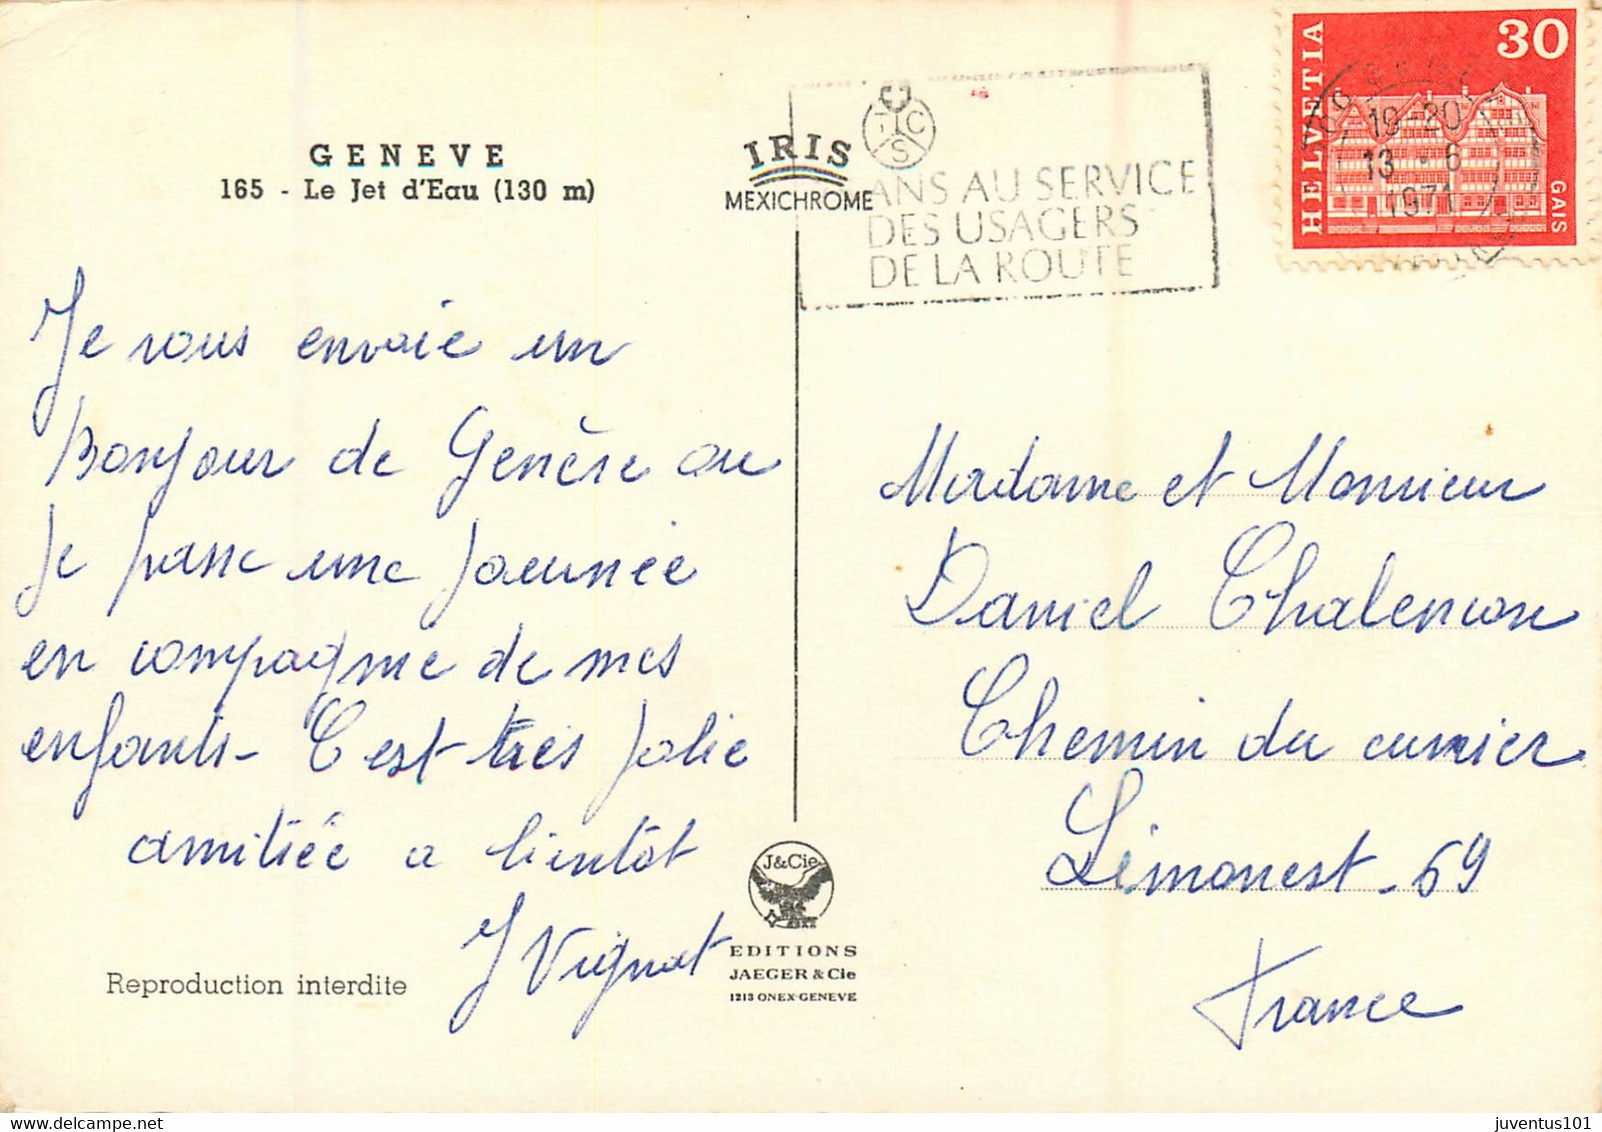 GENEVE
165 - Le Jet d'Eau (130 m)
IRIS
MEXICHROME
TCS
ANS AU SERVICE
DES USAGERS
DE LA ROUTE
HELVETIA
30
GAIS
19-20
13 - 6
1971
Je vous envoie un
Bonjour de Genève ou
je passe une journée
en compagnie de mes
enfants - C'est très jolie
amitiée a bientôt
J Vignat
Madame et Monsieur
Daniel Chalencon
Chemin du cuvier
Limonest - 69
France
J&Cie
EDITIONS
JAEGER & Cie
1213 ONEX-GENEVE
Reproduction interdite
juventus101